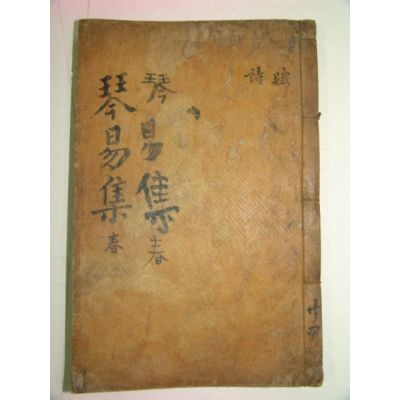 賦
詩
琴易集 春
琴易集 春
廿四